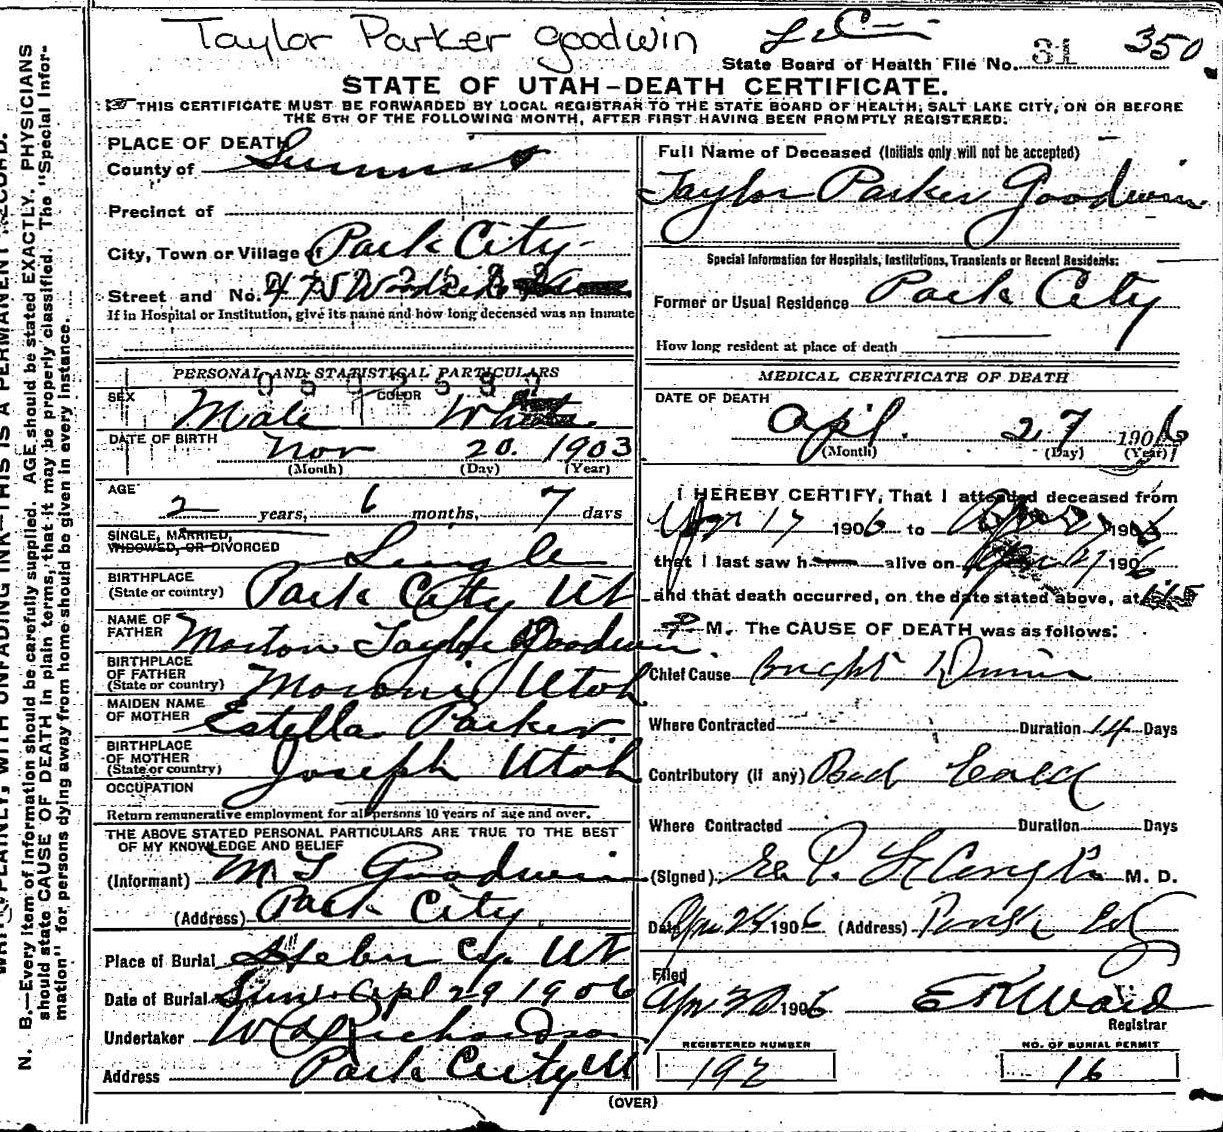 Taylor Parker Goodwin
350
State Board of Health File No. 31
STATE OF UTAH–DEATH CERTIFICATE.
THIS CERTIFICATE MUST BE FORWARDED BY LOCAL REGISTRAR TO THE STATE BOARD OF HEALTH, SALT LAKE CITY, ON OR BEFORE
THE 5TH OF THE FOLLOWING MONTH, AFTER FIRST HAVING BEEN PROMPTLY REGISTERED.
PLACE OF DEATH
County of Summit
Precinct of
City, Town or Village of Park City
Street and No. 475 Woodside
If in Hospital or Institution, give its name and how long deceased was an inmate
PERSONAL AND STATISTICAL PARTICULARS
SEX Male COLOR White
DATE OF BIRTH Nov 20. 1903
(Month) (Day) (Year)
AGE 2 years, 6 months, 7 days
SINGLE, MARRIED,
WIDOWED, OR DIVORCED Single
BIRTHPLACE
(State or country) Park City Ut
NAME OF
FATHER Morton Taylor Goodwin
BIRTHPLACE
OF FATHER
(State or country) Moroni Utah
MAIDEN NAME
OF MOTHER Estella Parker
BIRTHPLACE
OF MOTHER
(State or country) Joseph Utah
OCCUPATION
Return remunerative employment for all persons 10 years of age and over.
THE ABOVE STATED PERSONAL PARTICULARS ARE TRUE TO THE BEST
OF MY KNOWLEDGE AND BELIEF
(Informant) M T Goodwin
(Address) Park City
Place of Burial Heber Cy. Ut
Date of Burial Sun. Apl 29 1906
Undertaker W Richardson
Address Park City Ut
Full Name of Deceased (Initials only will not be accepted)
Taylor Parker Goodwin
Special Information for Hospitals, Institutions, Transients or Recent Residents:
Former or Usual Residence Park City
How long resident at place of death
MEDICAL CERTIFICATE OF DEATH
DATE OF DEATH
Apl. 27 1906
(Month) (Day) (Year)
I HEREBY CERTIFY, That I attended deceased from
Apr 17 1906 to Apr 27 1906
that I last saw h alive on Apr 27 1906
and that death occurred, on the date stated above, at
P M. The CAUSE OF DEATH was as follows:
Chief Cause Bright
Where Contracted Duration 14 Days
Contributory (if any) Bad Cold
Where Contracted Duration Days
(Signed) E. P. M. D.
Date Apr 1906 (Address) Park City
Filed
Apr 30 1906 E R Ward
Registrar
REGISTERED NUMBER
192
NO. OF BURIAL PERMIT
16
(OVER)
WRITE PLAINLY, WITH UNFADING INK—THIS IS A PERMANENT RECORD.
N. B.—Every item of information should be carefully supplied. AGE should be stated EXACTLY. PHYSICIANS
should state CAUSE OF DEATH in plain terms, that it may be properly classified. The "Special Infor-
mation" for persons dying away from home should be given in every instance.